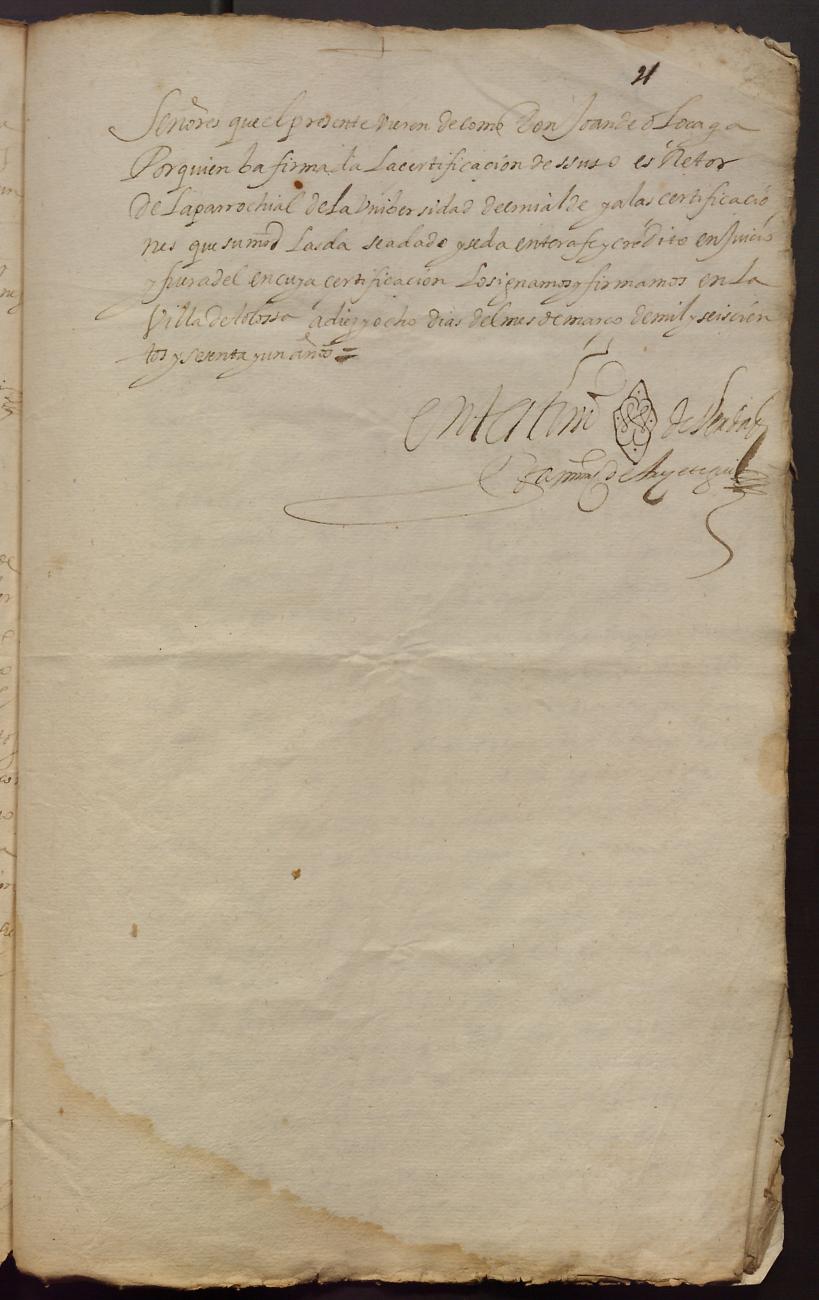 21
Señores que el presente vieren de como Don Joan de olocaga
Por quien ba firmada la certificacion de suso es Retor
de la parrochial de la Vnibersidad de ernialde y a las certificacio
nes que su md las da sea dado y se da entera fe y credito en Juicio
y fuera del en cuya certificacion lo signamos y firmamos en la
Villa de tolossa a diez y ocho dias del mes de março de mil y seiscien
tos y setenta y un años =
en testim de
de